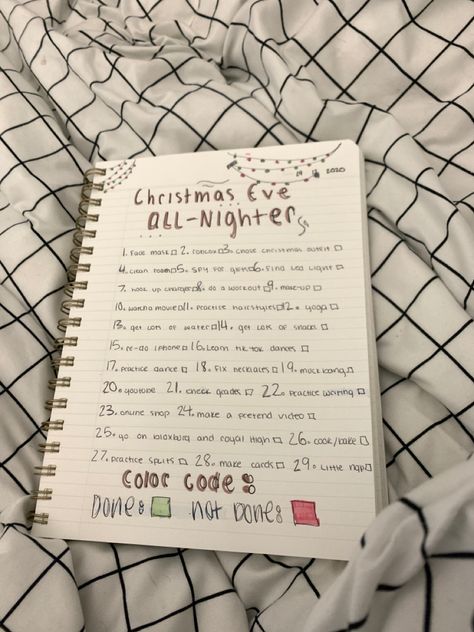 2020
Christmas Eve
all-Nighter
1. Face mask 2. 3. chose christmas outfit
4. clean room 5. spy for gifts 6. find led light
7. hook up charger 8. do a workout 9. make-up
10. watch a movie 11. practice hairstyles 12. yoga
13. get lots of water 14. get lots of snacks
15. re-do iphone 16. learn tik tok dances
17. practice dance 18. fix necklaces 19. muckbang
20. youtube 21. check grades 22. practice writing
23. online shop 24. make a pretend video
25. go on bloxburg and royal high 26. cook/bake
27. practice splits 28. make cards 29. little nap
color code:
Done: not Done: